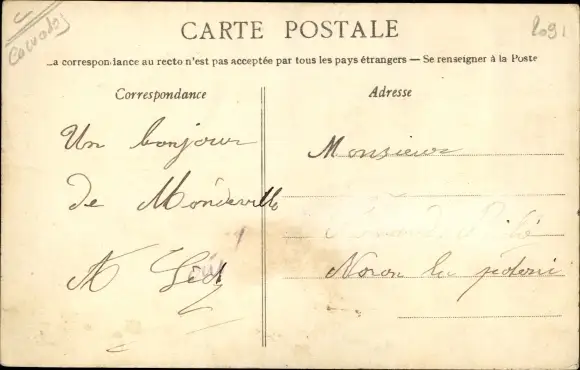 Calvados
2091
CARTE POSTALE
La correspondance au recto n'est pas acceptée par tous les pays étrangers — Se renseigner à la Poste
Correspondance
Adresse
Un bonjour
de Mondeville
A
Monsieur
Noron la poterie